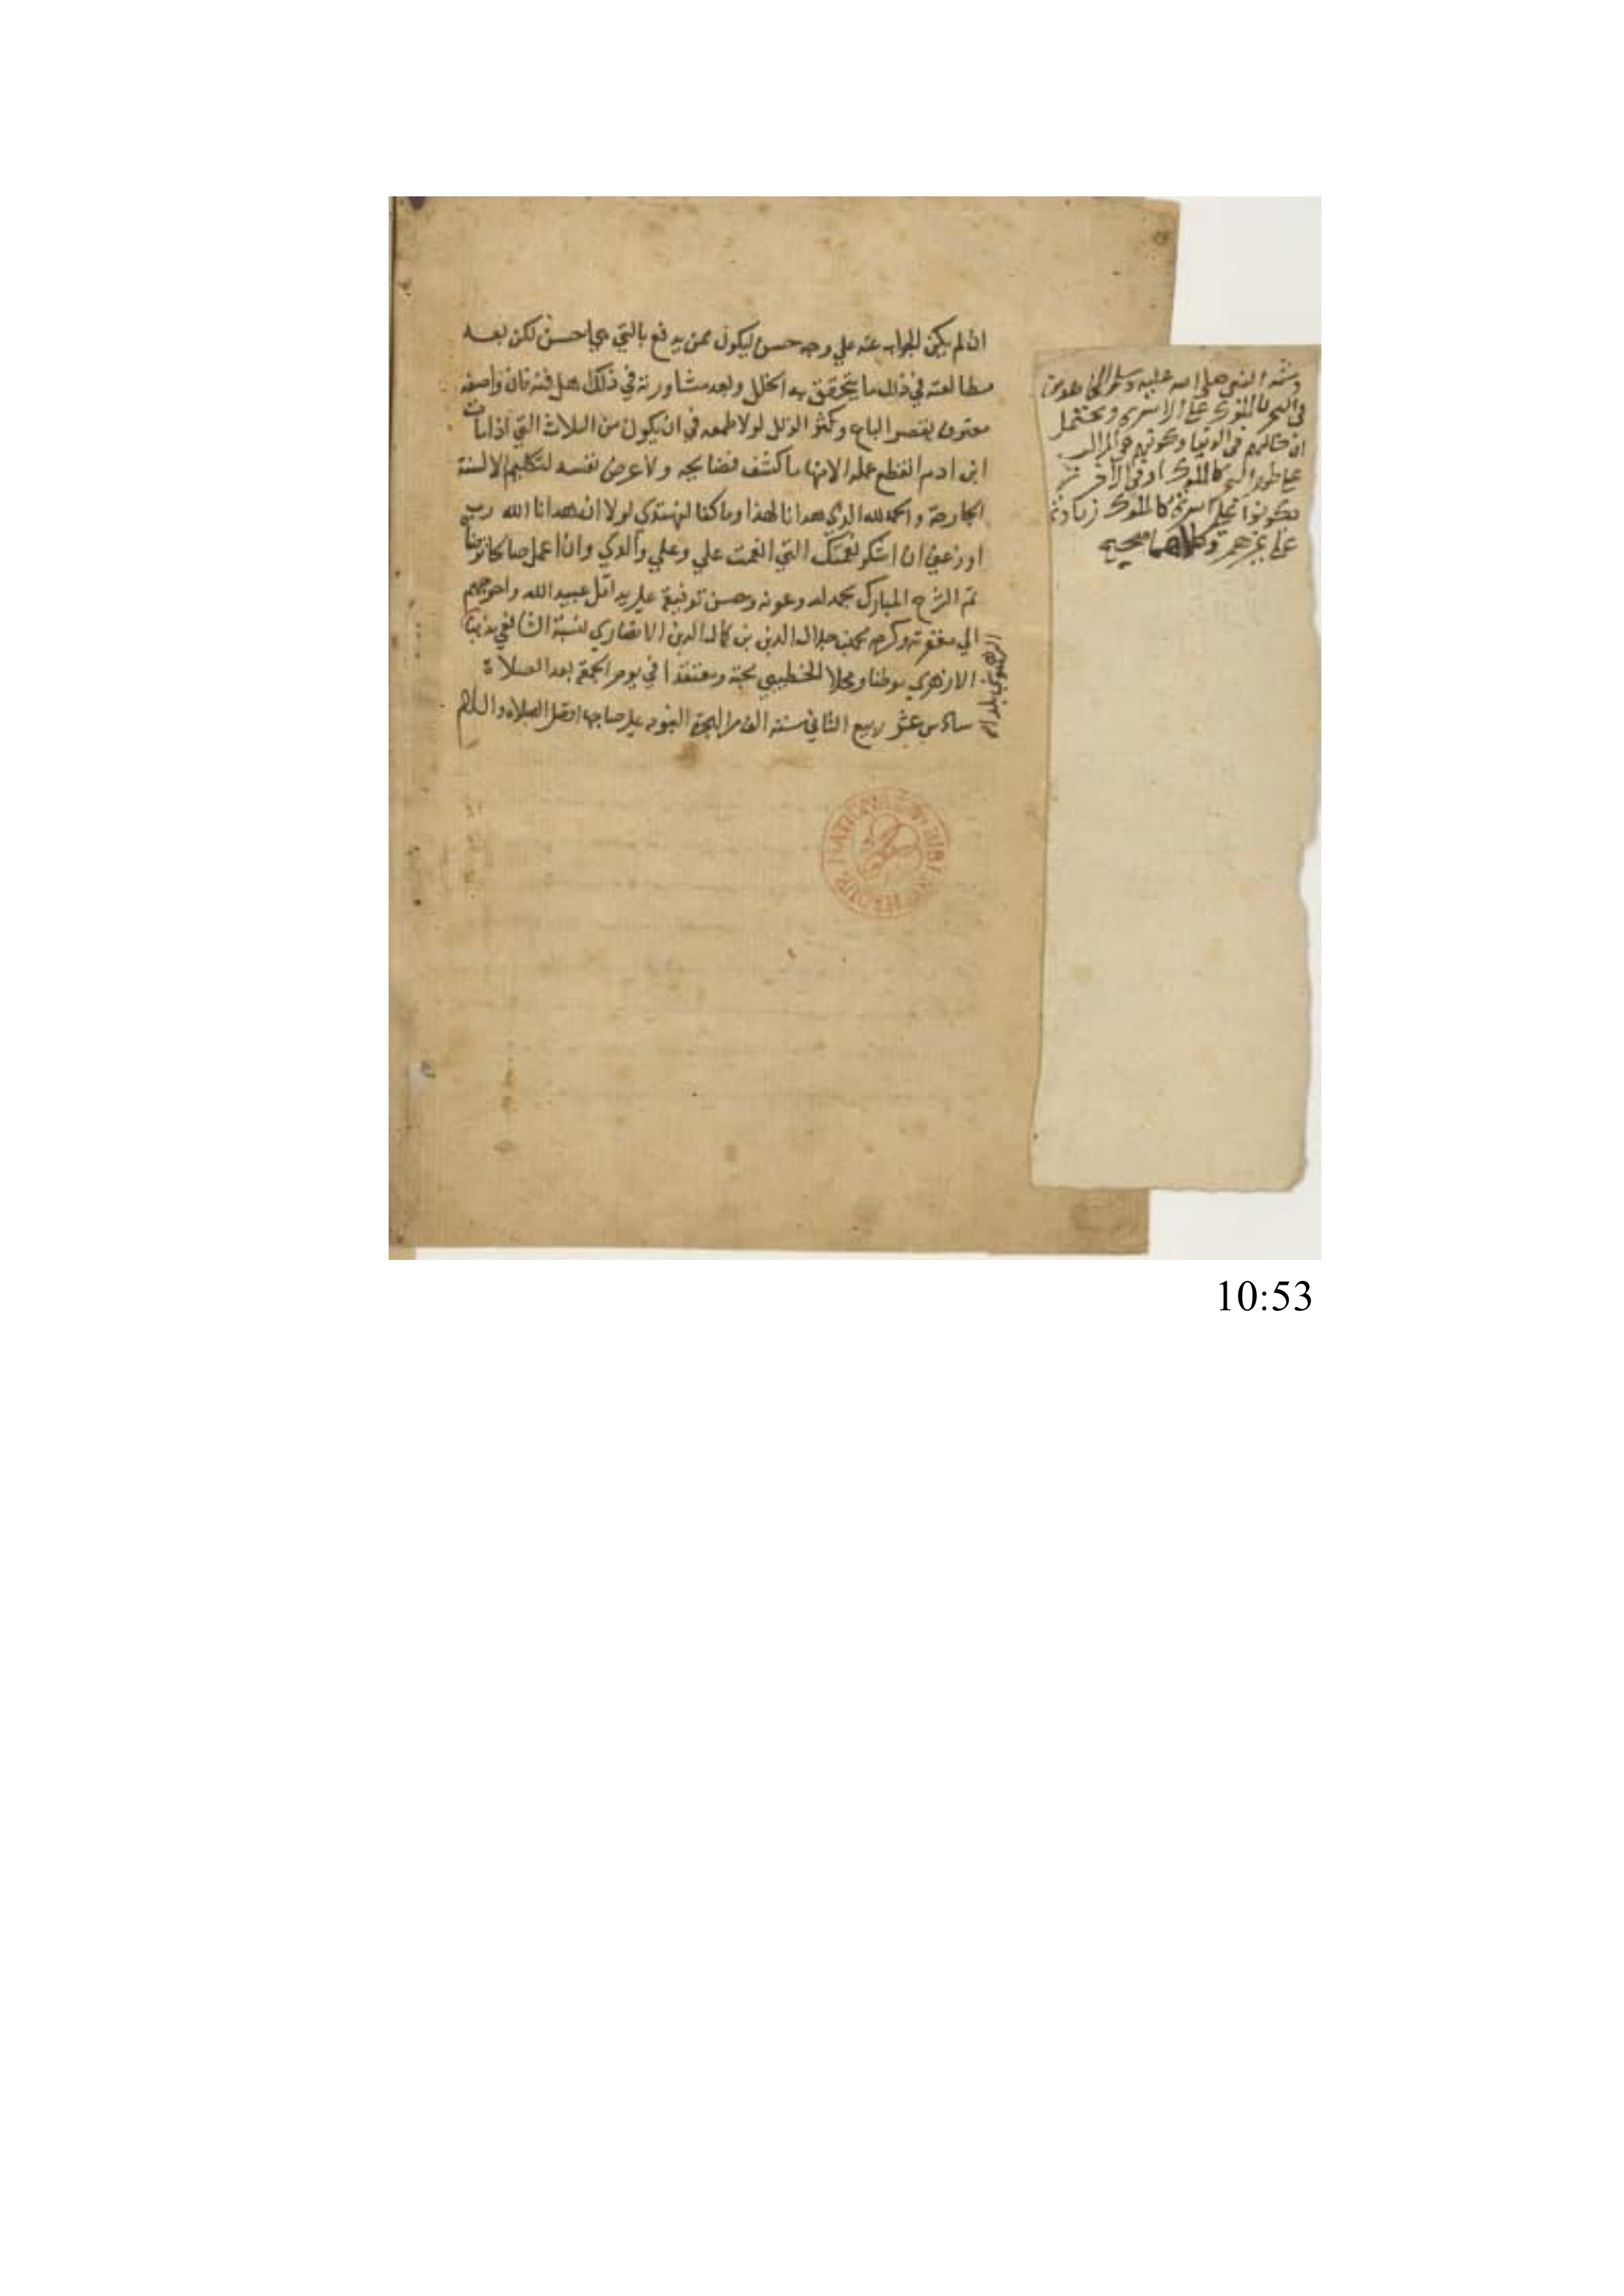 ان لم يكن الجواب عنه علي وجه حسن ليكون ممن يدفع بالتي هي احسن لكن بعد
مطالعته في ذلك ما يتحقق به الخلل وبعد مشاورته في ذلك هل فنه فان واصفه
معترف بقصر الباع وكثرة الزلل لولا طمعه في ان يكون من الثلاث التي اذا مات
ابن ادم انقطع عمله الا منها ما كشف فضايحه ولا عرض نفسه لتكليم الالسنة
الجارحة والحمد لله الذي هدانا لهذا وما كنا لنهتدي لولا ان هدانا الله رب
اوزعني ان اشكر نعمتك التي انعمت علي وعلي والدي وان اعمل صالحا ترضاه
تم الشرح المبارك بحمد الله وعونه وحسن توفيقه علي يد اقل عبيد الله واحوجهم
الي مغفرته وكرمه محب جلال الدين بن كمال الدين الانصاري نسبة الشافعي مذهبا
بلدا
الازهري موطنا ومحلا الخطيبي محبة ومعتقدا في يوم الجمعة بعد الصلاة
سادس عشر ربيع الثاني سنة الف من الهجرة النبوية علي صاحبها افضل الصلاة والسلام
النبي صلى الله عليه وسلم
في البحر بالملوك على الاسرة ويحتمل
ان حالهم في الدنيا
على ظهور البحر كالملوك او في الآخرة
يكونوا على اسرة كالملوك زيادة
على غيرهم وكلاهما صحيح
BIBLIOTHEQUE NATIONALE
10:53